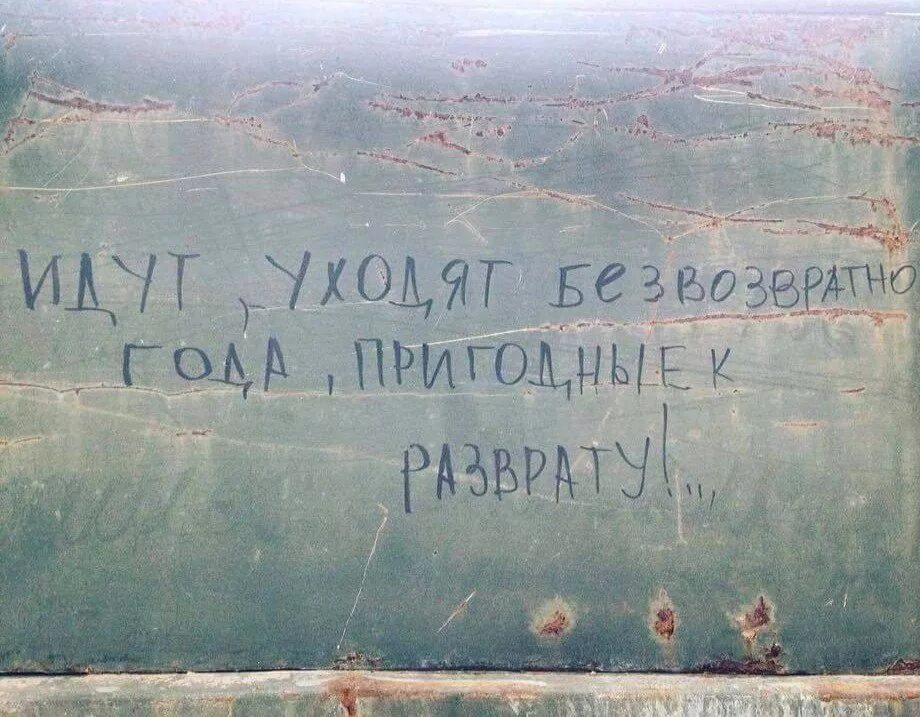 ИДУТ, УХОДЯТ БЕЗВОЗВРАТНО
ГОДА, ПРИГОДНЫЕ К
РАЗВРАТУ!...